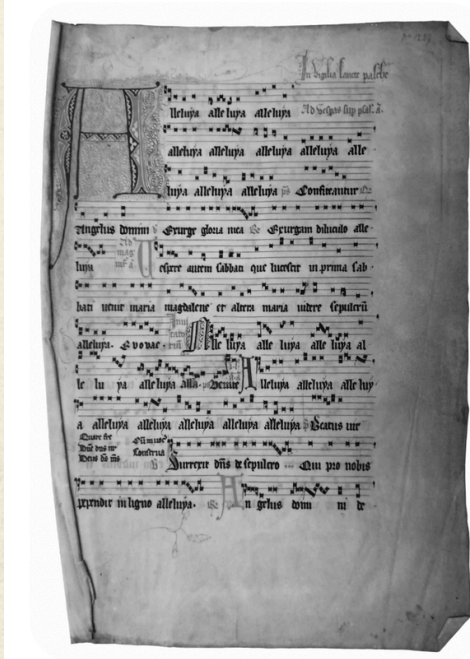 In vigilia sancte pasche
Alleluya alleluya alleluya Ad vesperas sup psal. a.
alleluya alleluya alleluya alleluya alle
luya alleluya alleluya ps Confitemini
Angelus domini Exurge gloria mea Exurgam diluculo alle
luya Ad mag Vespere autem sabbati que lucescit in prima sab
bati venit maria magdalene et altera maria videre sepulcrū
alleluya. Evovae. Alleluya alleluya alleluya al
le lu ya alleluya alla. Venite Alleluya alleluya alleluy
a alleluya alleluya alleluya alleluya alleluya Beatus vir
Quare fre
Conserva
Surrexit dn̄s de sepulcro Qui pro nobis
pependit in ligno alleluya. An gelus domi ni de